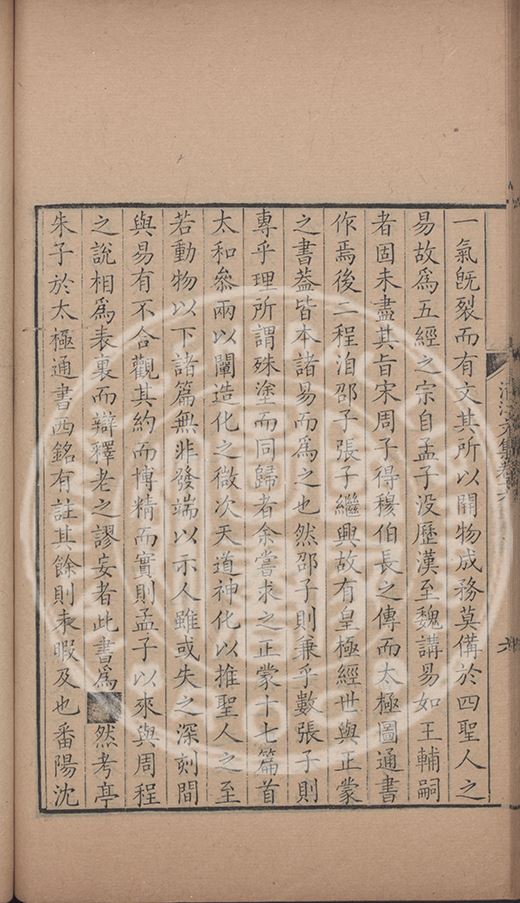 一氣旣裂而有文其所以開物成務莫備於四聖人之
易故爲五經之宗自孟子没歷漢至魏講易如王輔嗣
者固未盡其旨宋周子得穆伯長之傳而太極圖通書
作焉後二程洎邵子張子繼興故有皇極經世與正蒙
之書葢皆本諸易而爲之也然邵子則兼乎數張子則
專乎理所謂殊塗而同歸者余嘗求之正蒙十七篇首
太和叅兩以闡造化之微次天道神化以推聖人之至
若動物以下諸篇無非發端以示人雖或失之深刻間
與易有不合觀其約而博精而實則孟子以來與周程
之說相爲表裏而辯釋老之謬妄者此書爲 然考亭
朱子於太極通書西銘有註其餘則未暇及也番陽沈
文集卷六
六